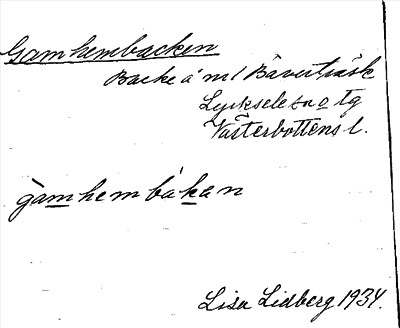 Gamhembacken
Backe å m1 Bäverträsk
Lycksele sn o tg
Västerbottens l.
gàmhembákan
Lisa Lidberg 1934.